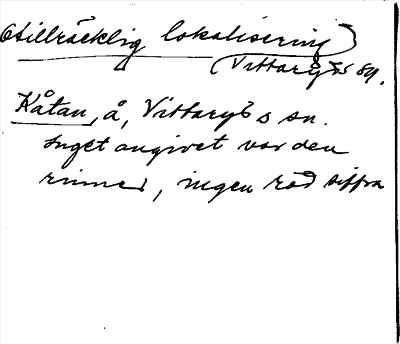 Otillräcklig lokalisering
(Vittaryds sn.
Kåtan, å, Vittaryds sn.
Inget angivet var den
rinner, ingen röd siffra